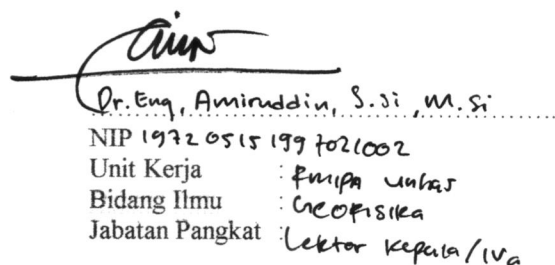 Dr. Eng, Amiruddin, S.Si, M.Si
NIP 19720515 199702 1002
Unit Kerja : FMIPA Unhas
Bidang Ilmu : Geofisika
Jabatan Pangkat : Lektor Kepala/IVa